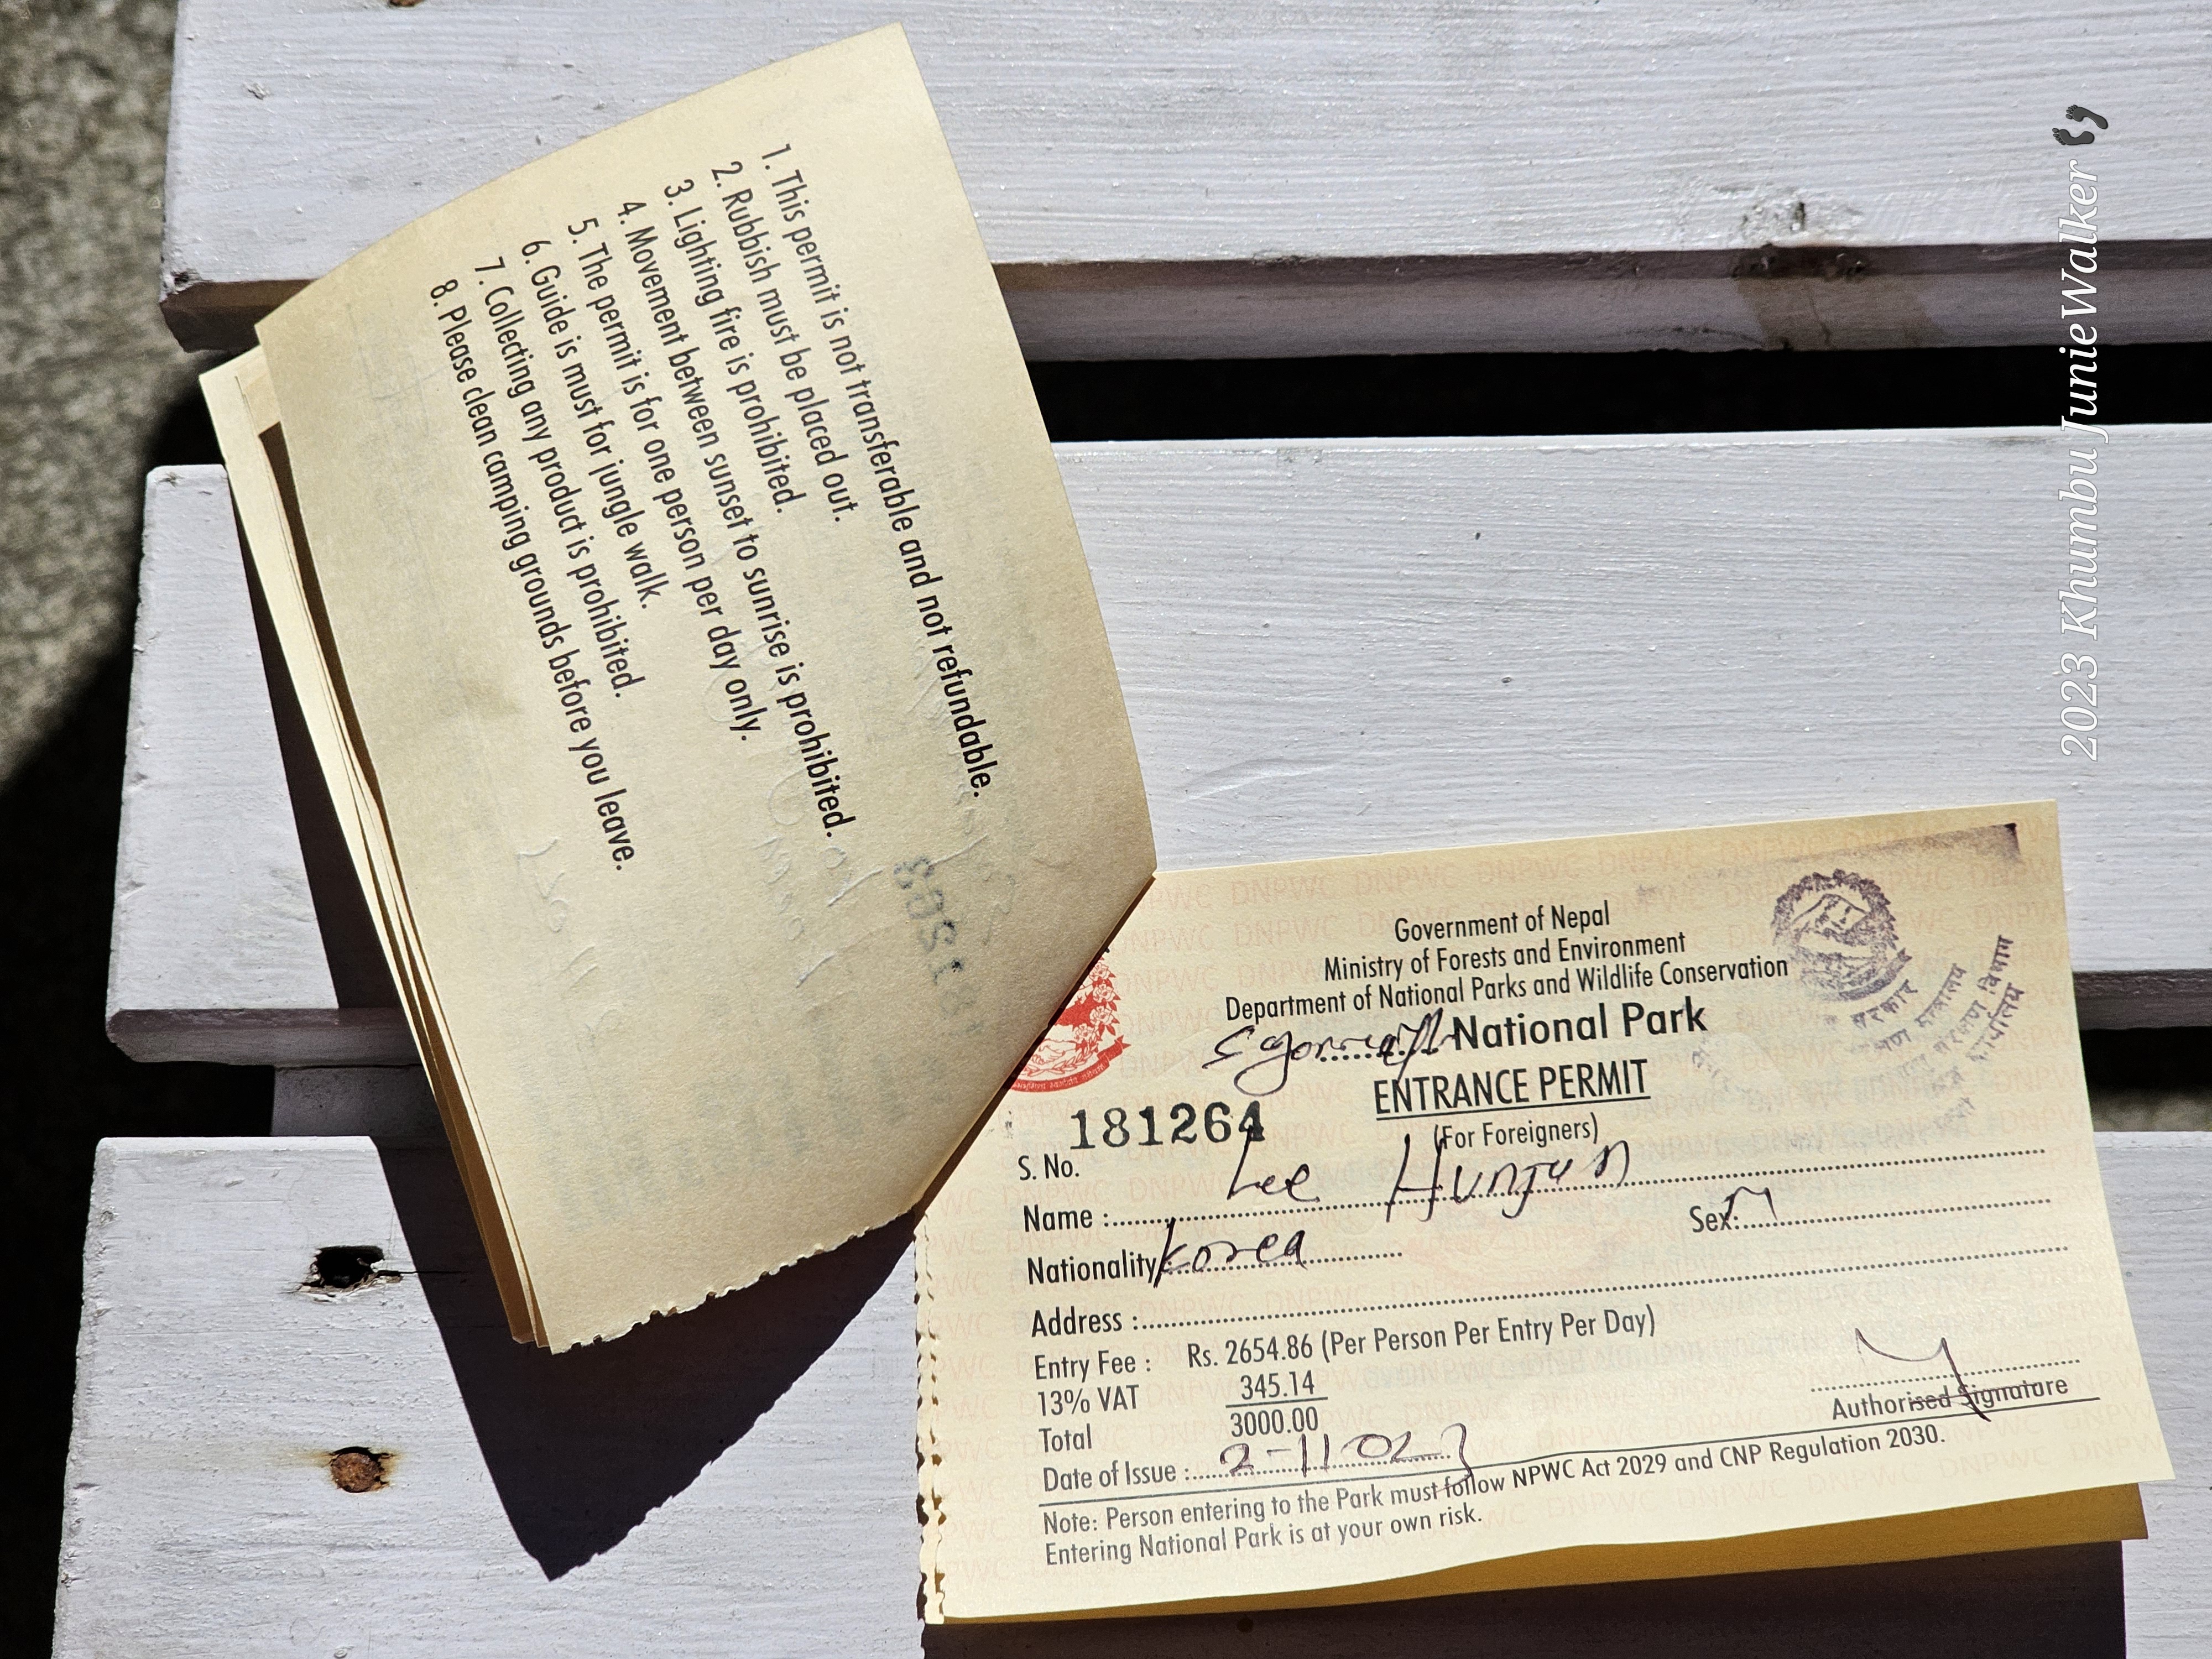 1. This permit is not transferable and not refundable.
2. Rubbish must be placed out.
3. Lighting fire is prohibited.
4. Movement between sunset to sunrise is prohibited.
5. The permit is for one person per day only.
6. Guide is must for jungle walk.
7. Collecting any product is prohibited.
8. Please clean camping grounds before you leave.
Government of Nepal
Ministry of Forests and Environment
Department of National Parks and Wildlife Conservation
National Park
ENTRANCE PERMIT
(For Foreigners)
181264
S. No.
Name : Lee Hunjun
Sex: M
Nationality: Korea
Address :
Entry Fee : Rs. 2654.86 (Per Person Per Entry Per Day)
13% VAT 345.14
Total 3000.00
Date of Issue :
Authorised Signature
Note: Person entering to the Park must follow NPWC Act 2029 and CNP Regulation 2030.
Entering National Park is at your own risk.
2023 Khumbu JunieWalker